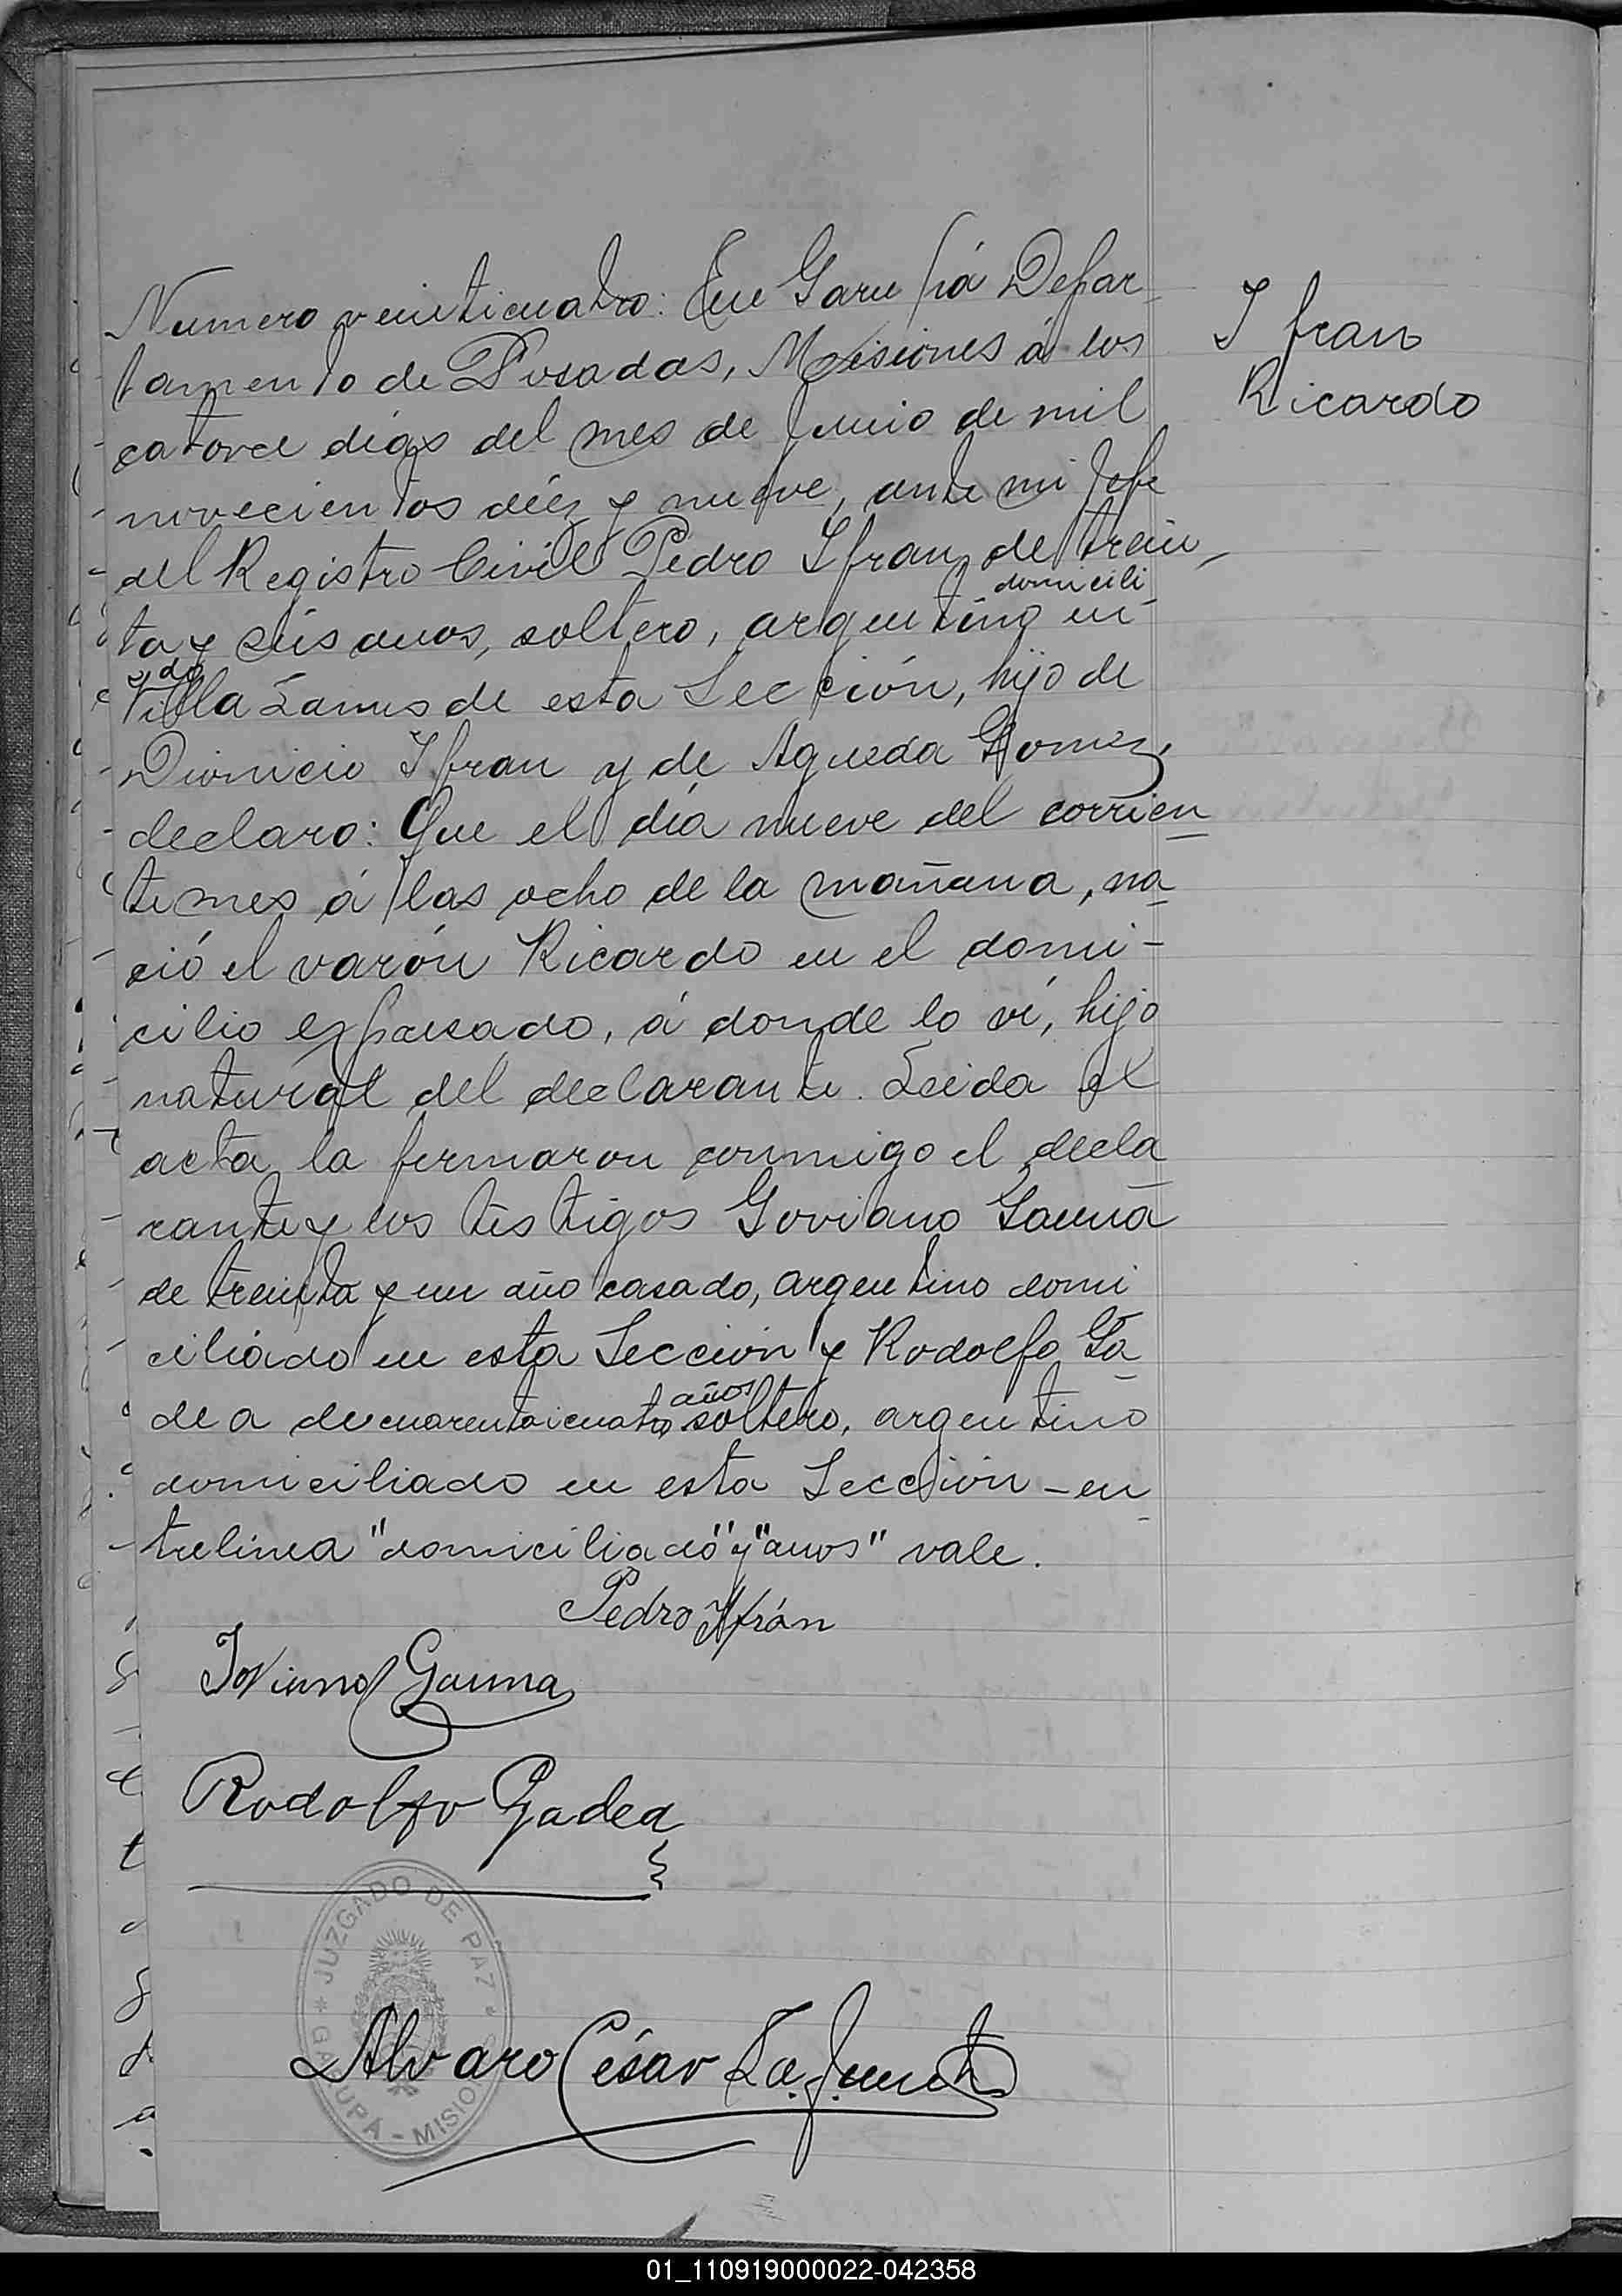 Numero veinticuatro: En Garupá Depar-
tamento de Posadas, Misiones á los
catorce dias del mes de Junio de mil
novecientos diéz y nueve, ante mi Jefe
del Registro Civil Pedro Ifran, de trein-
domicili
ta y seis anos, soltero, argentino en
ado
Villa Lanus de esta Sección, hijo de
Dionicio Ifran y de Agueda Gomez,
declaro: Que el día nueve del corrien
te mes á las ocho de la mañana, na
ció el varón Ricardo en el domi-
cilio expresado, á donde lo ví, hijo
natural del declarante. Leida el
acta la firmaron conmigo el decla
rante y los testigos Goviano Gauna
de treinta y un año casado, argentino domi
ciliado en esta Seccion y Rodolfo Ga
años
dea de cuarentaicuatro soltero, argentino
domiciliado en esta Sección - en
trelinea "domiciliado" y "anos" vale.
Pedro Ifrán
Joviano Gauna
Rodolfo Gadea
JUZGADO DE PAZ
GARUPÁ - MISIO
Alvaro César
Ifran
Ricardo
01_110919000022-042358